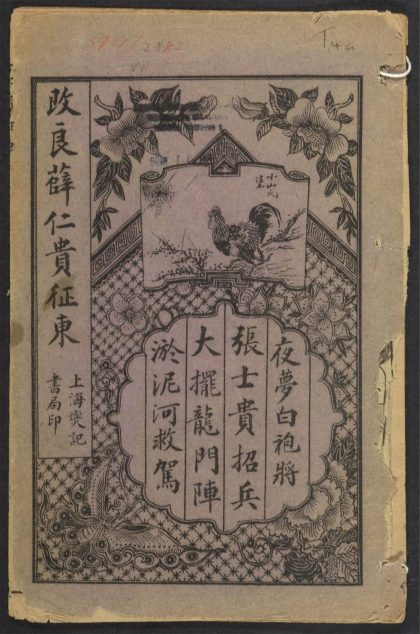 改良薛仁貴征東
上海燮記
書局印
夜夢白袍將
張士貴招兵
大擺龍門陣
淤泥河救駕